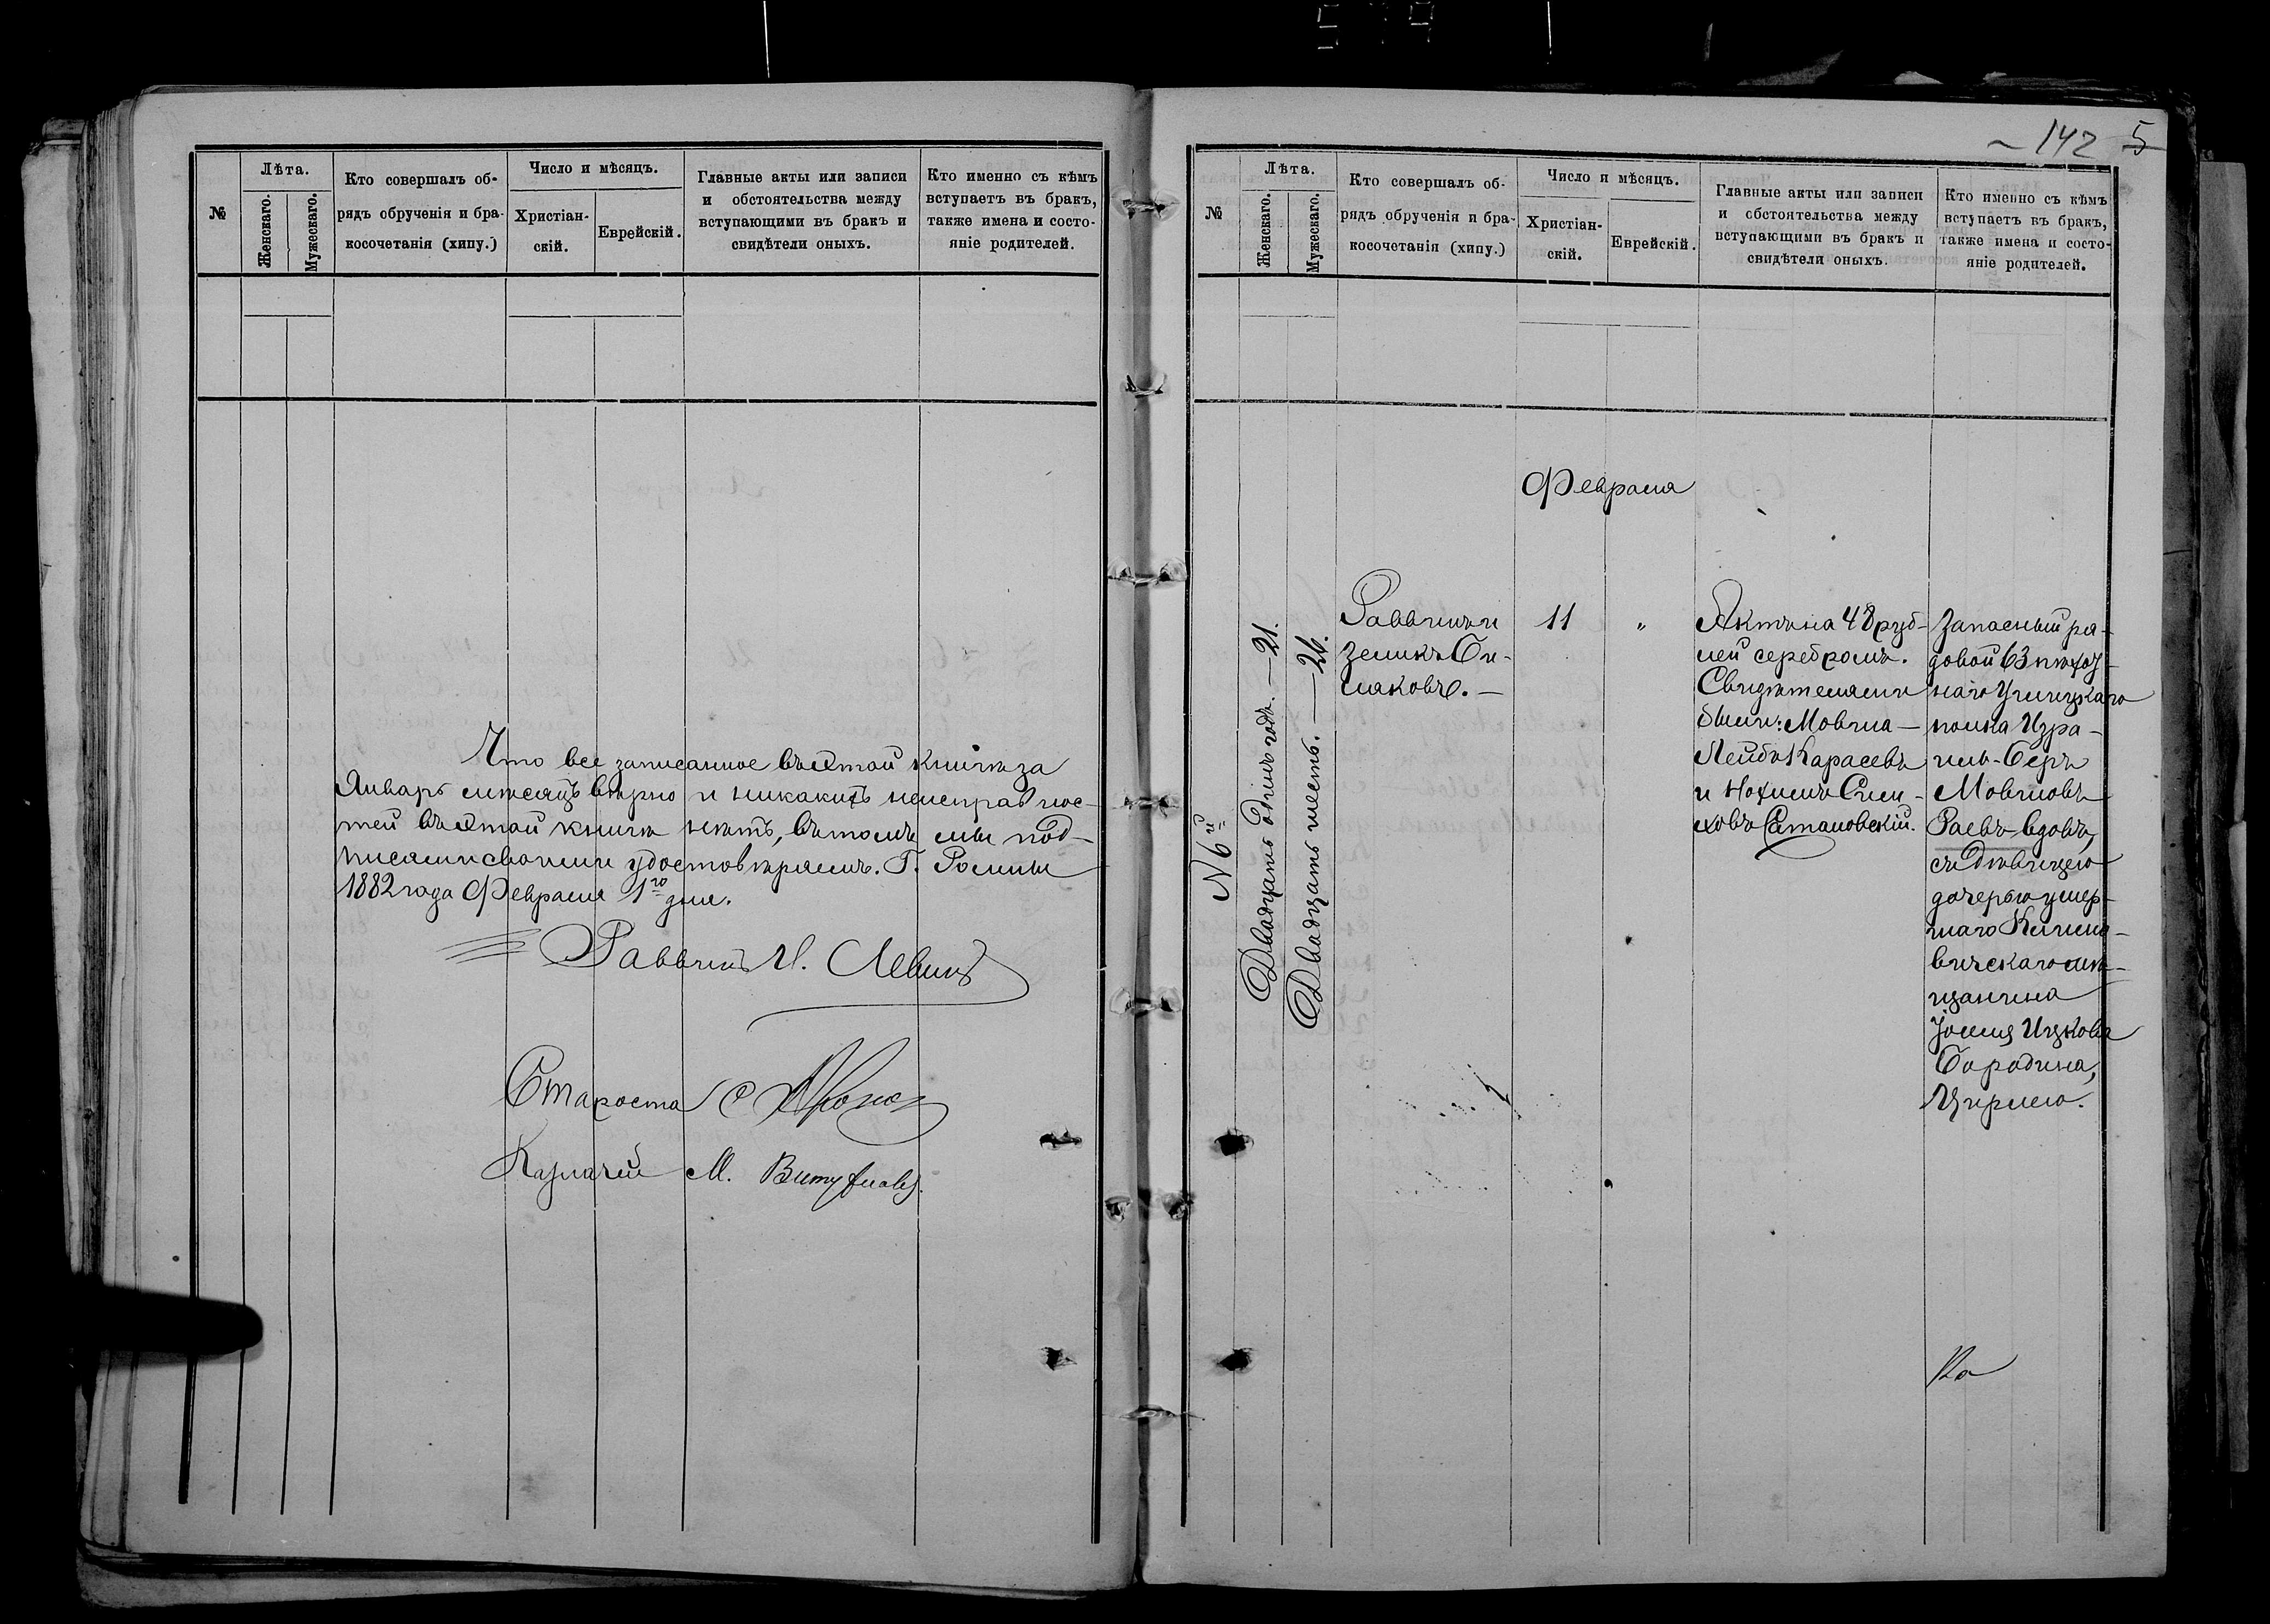 №
Лѣта.
Женскаго.
Мужескаго.
Кто совершалъ об-
рядъ обрученія и бра-
косочетанія (хипу.)
Число и мѣсяцъ.
Христіан-
скій.
Еврейскій.
Главные акты или записи
и обстоятельства между
вступающими въ бракъ и
свидѣтели оныхъ.
Кто именно съ кѣмъ
вступаетъ въ бракъ,
также имена и состо-
яніе родителей.
Что все записанное въ этой книгѣ за
Январь мѣсяцъ вѣрно и никакихъ неисправнос-
тей въ этой книгѣ нѣтъ, въ томъ мы под-
писями своими удостовѣряемъ. Г. Ромны
1882 года Февраля 1го дня.
Раввинъ И. Левинъ
Староста С
Казначей М.
142 5
№
Лѣта.
Женскаго.
Мужескаго.
Кто совершалъ об-
рядъ обрученія и бра-
косочетанія (хипу.)
Число и мѣсяцъ.
Христіан-
скій.
Еврейскій.
Главные акты или записи
и обстоятельства между
вступающими въ бракъ и
свидѣтели оныхъ.
Кто именно съ кѣмъ
вступаетъ въ бракъ,
также имена и состо-
яніе родителей.
Февраля
№ 6й
Двадцать одинъ годъ. — 21.
Двадцать шесть. — 26.
Раввинъ и
11
"
Актъ на 48 руб-
лей серебромъ.
Свидѣтелями
были: Мовша —
Лейбъ Карасевъ
и Нохимъ Сим-
ховъ Сатановскій.
Запасный ря-
довой 63 пѣхот-
наго Углицкаго
полка Изра-
иль-Беръ
Мовшовъ
Раевъ вдовъ,
съ дѣвицею
дочерью умер-
шаго Климо-
вичскаго мѣ-
щанина
Ицкова
Бородина,
Цирлею.